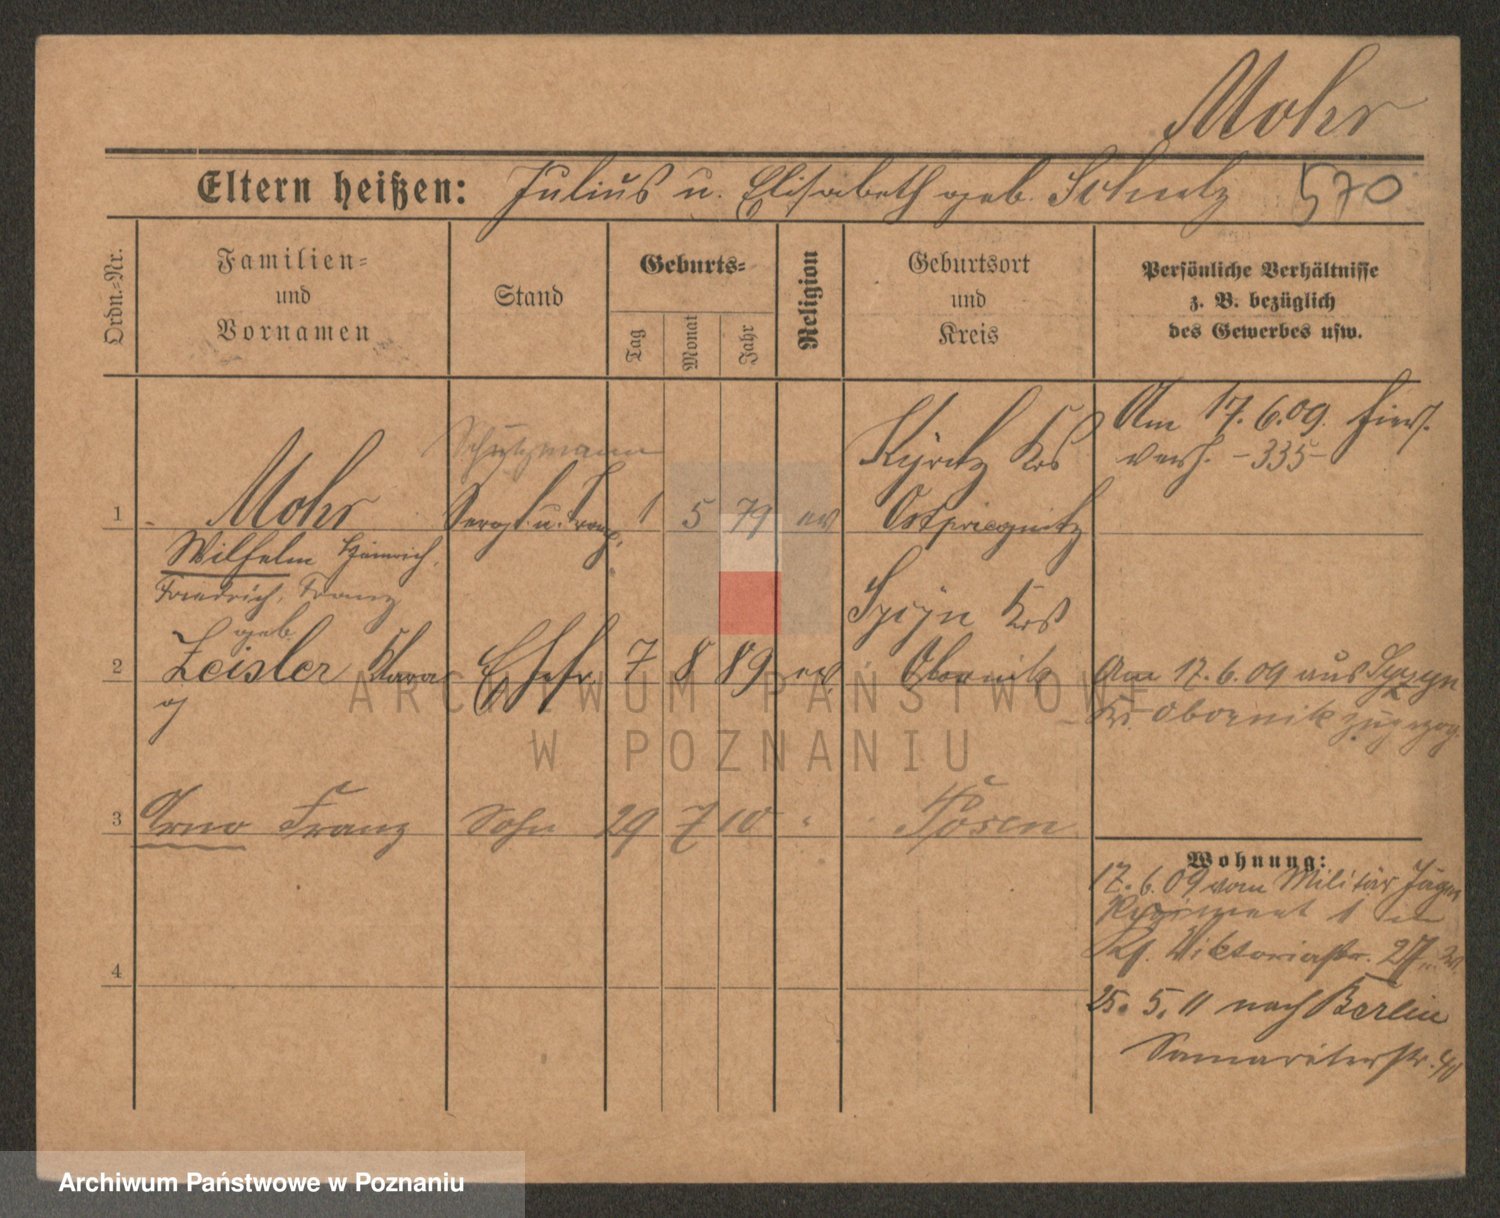 Mohr
Eltern heißen: Julius u. Elisabeth geb. Schulz 570
Ordn.-Nr.
Familien-
und
Vornamen
Stand
Geburts-
Tag
Monat
Jahr
Religion
Geburtsort
und
Kreis
Persönliche Verhältnisse
z. B. bezüglich
des Gewerbes usw.
Schutzmann
Kyritz Krs
Am 17. 6. 09. hier
verh. -335-
1 Mohr Sergt. u. Tromp. 1 5 79 ev Ostpriegnitz
Wilhelm Heinrich,
Friedrich, Franz
geb.
Krs
2 Zeisler Clara Ehefr. 7 8 89 ev. Obornik
Am 17. 6. 09 aus
Kr. Obornik zugezog.
3 Arno Franz Sohn 29 7 10 " Posen
4
Wohnung:
17. 6. 09 vom Militär Jäger
Regiment 1 in
Viktoriastr. 27
25. 5. 11 nach Berlin
Samariterstr. 40
ARCHIWUM PAŃSTWOWE
W POZNANIU
Archiwum Państwowe w Poznaniu